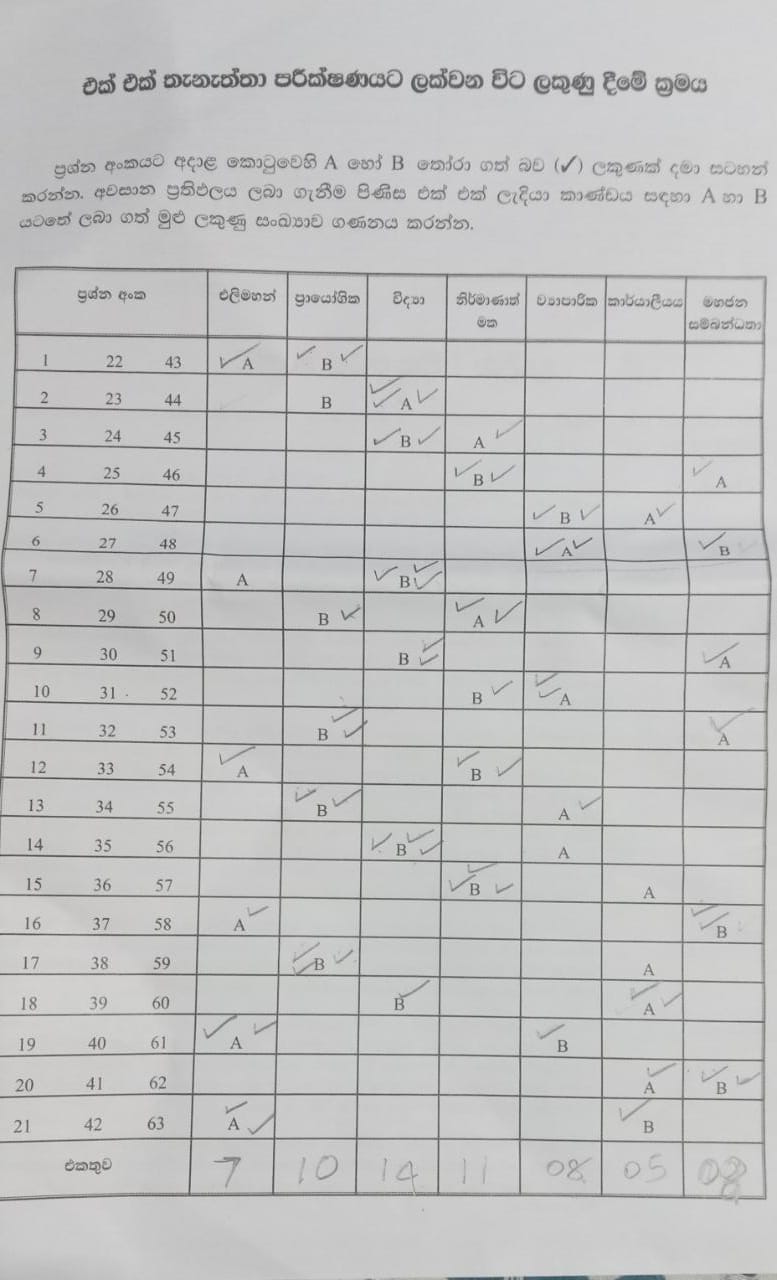 එක් එක් තැනැත්තා පරීක්ෂණයට ලක්වන විට ලකුණු දීමේ ක්‍රමය
ප්‍රශ්න අංකයට අදාළ කොටුවෙහි A හෝ B තෝරා ගත් බව (✓) ලකුණක් දමා සටහන්
කරන්න. අවසාන ප්‍රතිඵලය ලබා ගැනීම පිණිස එක් එක් ලැදියා කාණ්ඩය සඳහා A හා B
යටතේ ලබා ගත් මුළු ලකුණු සංඛ්‍යාව ගණනය කරන්න.
ප්‍රශ්න අංක එළිමහන් ප්‍රායෝගික විද්‍යා නිර්මාණාත් ව්‍යාපාරික කාර්යාලීයය මහජන
මක සම්බන්ධතා
1 22 43 ✓A ✓B✓
2 23 44 B ✓✓A✓
3 24 45 ✓B✓ A✓
4 25 46 ✓B✓ ✓A
5 26 47 ✓B✓ A✓
6 27 48 ✓A✓ ✓B
7 28 49 A ✓B✓✓
8 29 50 B✓ ✓A✓
9 30 51 B✓✓ ✓A
10 31 52 B✓ ✓✓A
11 32 53 B✓✓ ✓A
12 33 54 ✓A ✓B✓
13 34 55 ✓B✓ A✓
14 35 56 ✓B✓✓ A
15 36 57 ✓B✓✓ A
16 37 58 A✓ ✓✓B
17 38 59 ✓✓B✓ A
18 39 60 B✓ ✓A✓
19 40 61 ✓A✓ ✓B
20 41 62 A✓ ✓✓B✓
21 42 63 ✓A✓ ✓B
එකතුව 7 10 14 11 08 05